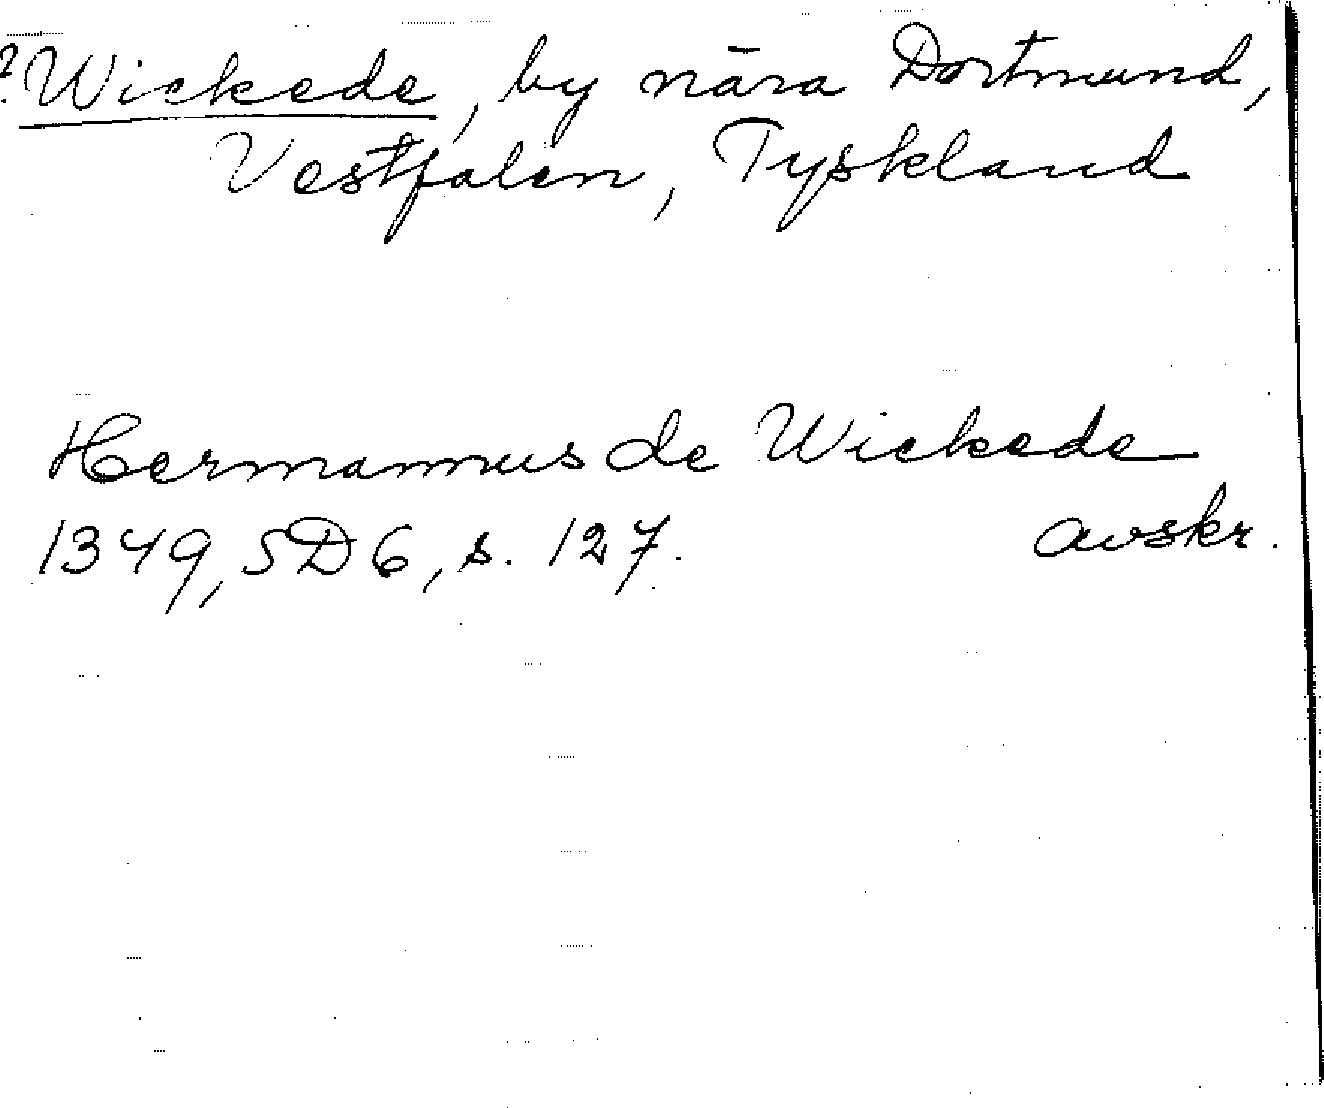 ? Wickede, by nära Dortmund,
Vestfalen, Tyskland
Hermannus de Wickede
1349, SD 6, s. 127. avskr.